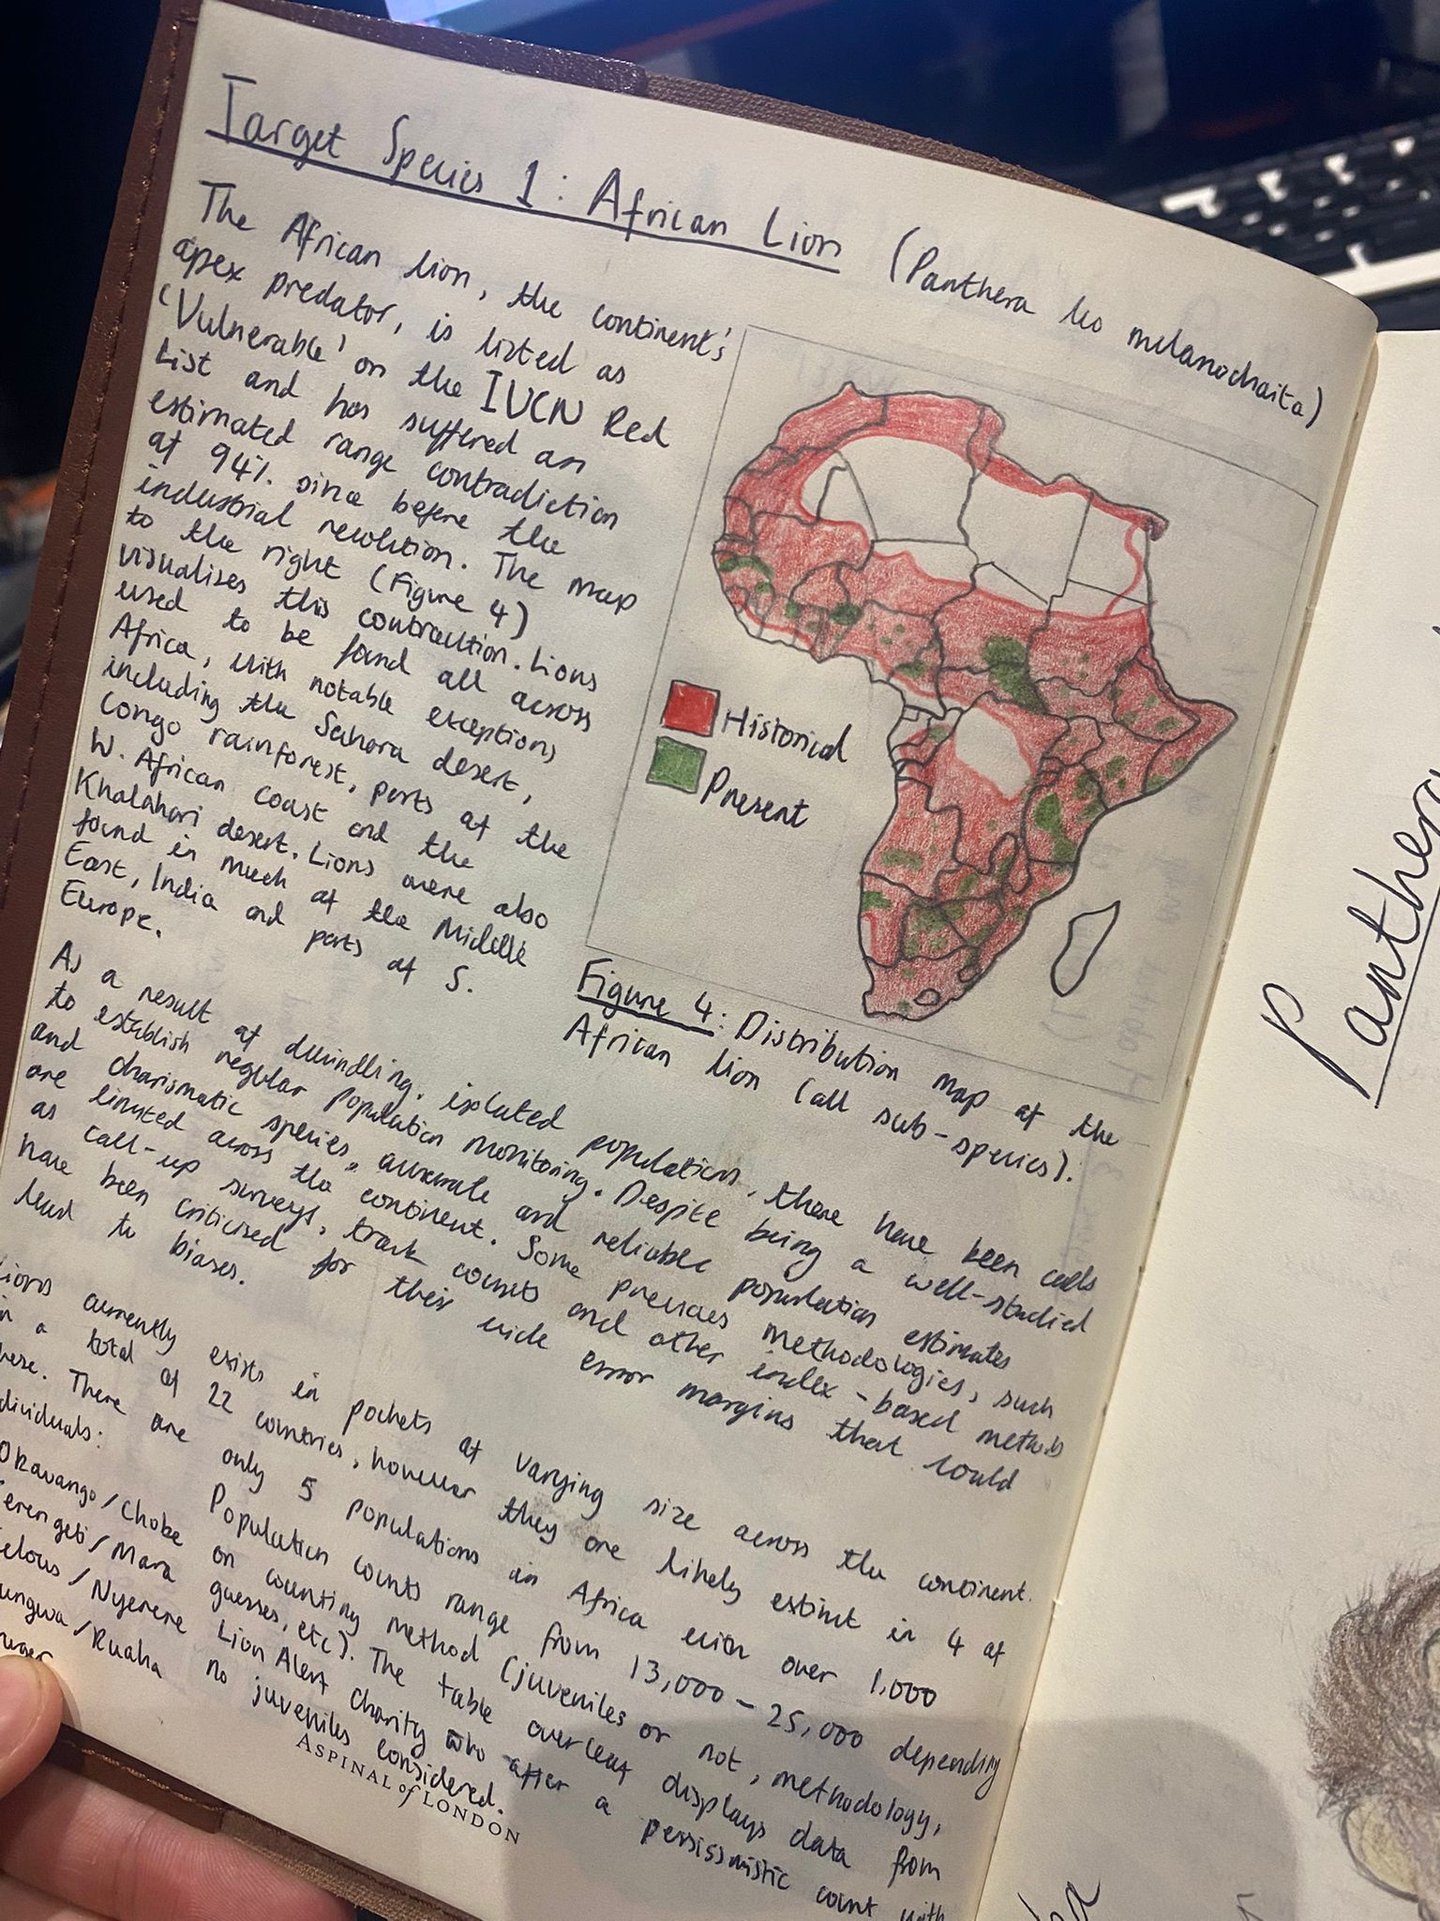 Target Species 1: African Lion (Panthera leo melanochaita)
The African lion, the continent's
apex predator, is listed as
'Vulnerable' on the IUCN Red
List and has suffered an
estimated range contradiction
of 94% since before the
industrial revolution. The map
to the right (Figure 4)
visualises this contraction. Lions
used to be found all across
Africa, with notable exceptions
including the Sahara desert,
Congo rainforest, parts of the
W. African coast and the
Khalahari desert. Lions were also
found in much of the Middle
East, India and parts of S.
Europe.
Historical
Present
Figure 4: Distribution map of the
African lion (all sub-species).
As a result of dwindling, isolated populations, there have been calls
to establish regular population monitoring. Despite being a well-studied
and charismatic species, accurate and reliable population estimates
are limited across the continent. Some previous methodologies, such
as call-up surveys, track counts and other index-based methods
have been criticised for their wide error margins that could
lead to biases.
Lions currently exists in pockets of varying size across the continent.
in a total of 22 countries, however they are likely extinct in 4 of
these. There are only 5 populations in Africa with over 1,000
dividuals:
Okavango/Chobe
erengeti/Mara
elous/Nyerere
ungwa/Ruaha
Population counts range from 13,000 - 25,000 depending
on counting method (juveniles or not, methodology,
guesses, etc). The table overleaf displays data from
Lion Alert charity who after a perssismistic count with
no juveniles considered.
ASPINAL of LONDON
Panthera